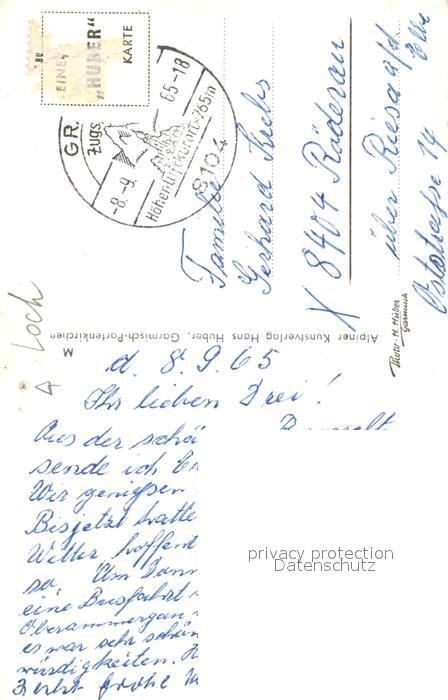 EINE
"HUBER"
KARTE
GR.
Zugs
65-18
-8.-9.
Höhenluftkurort ×765m
8104
Familie
Gerhard Krebs
X 8404 Röderau
über Riesa a/d
Elbe
Oststrasse 14
Photo-H. Huber
Garmisch
Alpiner Kunstverlag Hans Huber, Garmisch-Partenkirchen
M
Loch
4
d. 8.9.65
Ihr lieben Drei!
Aus der schö
sende ich
Wir genießen
Bisjetzt hatte
Wetter, hoffent
so. Am
eine Busfahrt
Oberammergau
es war sehr schön
würdigkeiten. H
frohe
privacy protection
Datenschutz